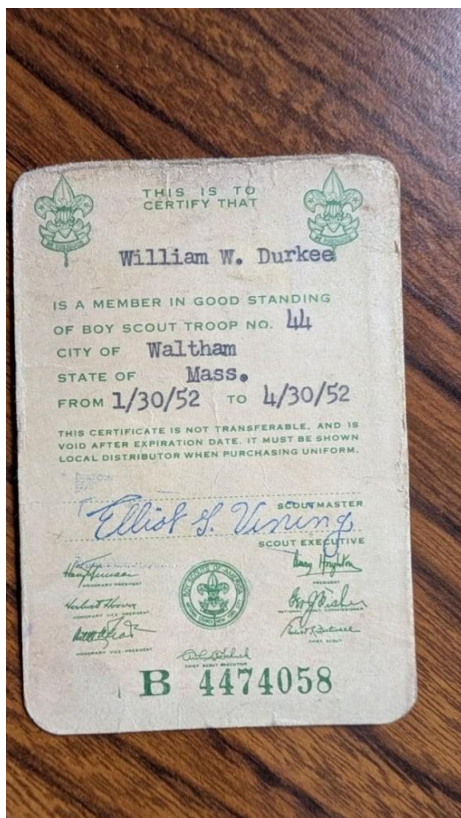 THIS IS TO
CERTIFY THAT
William W. Durkee
IS A MEMBER IN GOOD STANDING
OF BOY SCOUT TROOP NO. 44
CITY OF Waltham
STATE OF Mass.
FROM 1/30/52 TO 4/30/52
THIS CERTIFICATE IS NOT TRANSFERABLE, AND IS
VOID AFTER EXPIRATION DATE. IT MUST BE SHOWN
LOCAL DISTRIBUTOR WHEN PURCHASING UNIFORM.
SCOUTMASTER
Elliot S. Vining
SCOUT EXECUTIVE
Harry Truman
HONORARY PRESIDENT
PRESIDENT
Herbert Hoover
HONORARY VICE-PRESIDENT
HONORARY VICE-PRESIDENT
CHIEF SCOUT
CHIEF SCOUT EXECUTIVE
B 4474058